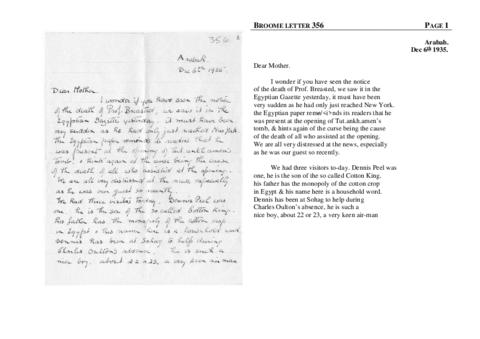 356
Arabah.
Dec 6th 1935.
Dear Mother.
I wonder if you have seen the notice
of the death of Prof. Breasted, we saw it in the
Egyptian Gazette yesterday, it must have been
very sudden as he had only just reached New York.
the Egyptian paper reminds its readers that he
was present at the opening of Tut.ankh.amen's
tomb, & hints again at the curse being the cause
of the death of all who assisted at the opening.
We are all very distressed at the news, especially
as he was our guest so recently.
We had three visitors today. Dennis Peel was
one, he is the son of the so called Cotton King,
his father has the monopoly of the cotton crop
in Egypt & his name here is a household word.
Dennis has been at Sohag to help during
Charles Oulton's absence, he is such a
nice boy, about 22 or 23, a very keen air-man
BROOME LETTER 356 PAGE 1
Arabah.
Dec 6th 1935.
Dear Mother.
I wonder if you have seen the notice
of the death of Prof. Breasted, we saw it in the
Egyptian Gazette yesterday, it must have been
very sudden as he had only just reached New York.
the Egyptian paper its readers that he
was present at the opening of Tut.ankh.amen's
tomb, & hints again of the curse being the cause
of the death of all who assisted at the opening.
We are all very distressed at the news, especially
as he was our guest so recently.
We had three visitors to-day. Dennis Peel was
one, he is the son of the so called Cotton King,
his father has the monopoly of the cotton crop
in Egypt & his name here is a household word.
Dennis has been at Sohag to help during
Charles Oulton's absence, he is such a
nice boy, about 22 or 23, a very keen air-man